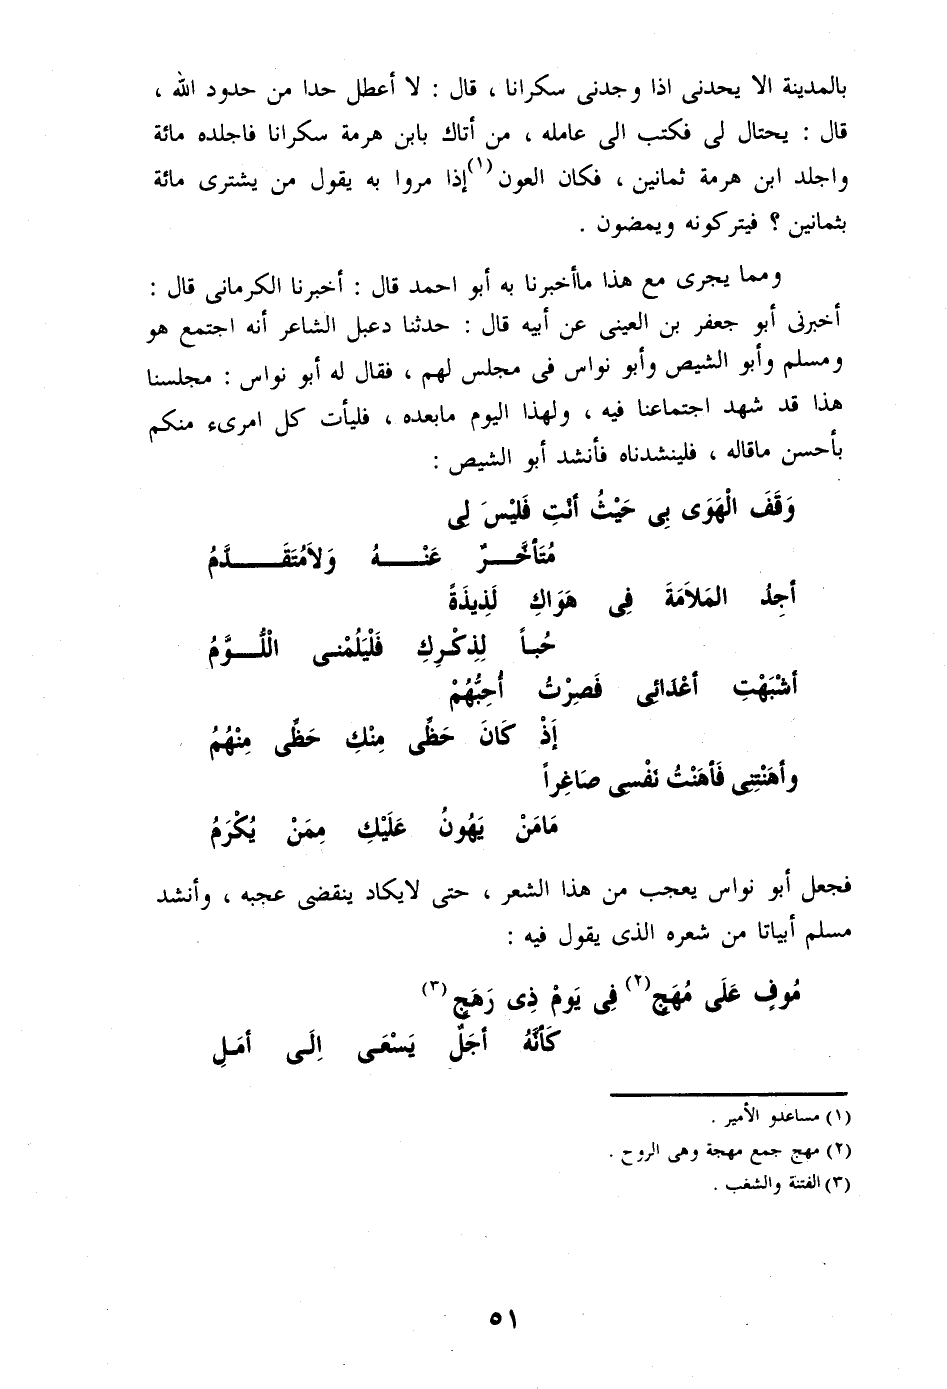 بالمدينة الا يحدنى اذا وجدنى سكرانا ، قال : لا أعطل حدا من حدود الله ،
قال : يحتال لى فكتب الى عامله ، من أتاك بابن هرمة سكرانا فاجلده مائة
واجلد ابن هرمة ثمانين ، فكان العون (١) إذا مروا به يقول من يشترى مائة
بثمانين ؟ فيتركونه ويمضون .
ومما يجرى مع هذا ماأخبرنا به أبو احمد قال : أخبرنا الكرمانى قال :
أخبرنى أبو جعفر بن العينى عن أبيه قال : حدثنا دعبل الشاعر أنه اجتمع هو
ومسلم وأبو الشيص وأبو نواس فى مجلس لهم ، فقال له أبو نواس : مجلسنا
هذا قد شهد اجتماعنا فيه ، ولهذا اليوم مابعده ، فليأت كل امرىء منكم
بأحسن ماقاله ، فلينشدناه فأنشد أبو الشيص :
وَقَفَ الْهَوَى بِى حَيْثُ أنْتِ فَليْسَ لِى
مُتَأخَّرٌ عَنْهُ وَلاَمُتَقَدَّمُ
أجِدُ المَلاَمَةَ فِى هَوَاكِ لَذِيذَةً
حُباً لِذِكْرِكِ فَلْيَلُمْنى الْلُّوَّمُ
أشْبَهْتِ أعْدَائِى فَصِرْتُ أُحِبُّهُمْ
إَذْ كَانَ حَظِّى مِنْكِ حَظِّى مِنْهُمُ
وأهَنْتِنِى فَأهَنْتُ نَفْسِى صَاغِراً
مَامَنْ يَهُونُ عَلَيْكِ مِمَنْ يُكْرَمُ
فجعل أبو نواس يعجب من هذا الشعر ، حتى لايكاد ينقضى عجبه ، وأنشد
مسلم أبياتا من شعره الذى يقول فيه :
مُوفٍ عَلَى مُهَجٍ (٢) فِى يَومْ ذِى رَهَجٍ (٣)
كَأنَّهُ أجَلٌ يَسْعَى اِلَى أمَلِ
(١) مساعدو الأمير .
(٢) مهج جمع مهجة وهى الروح .
(٣) الفتنة والشغب .
٥١